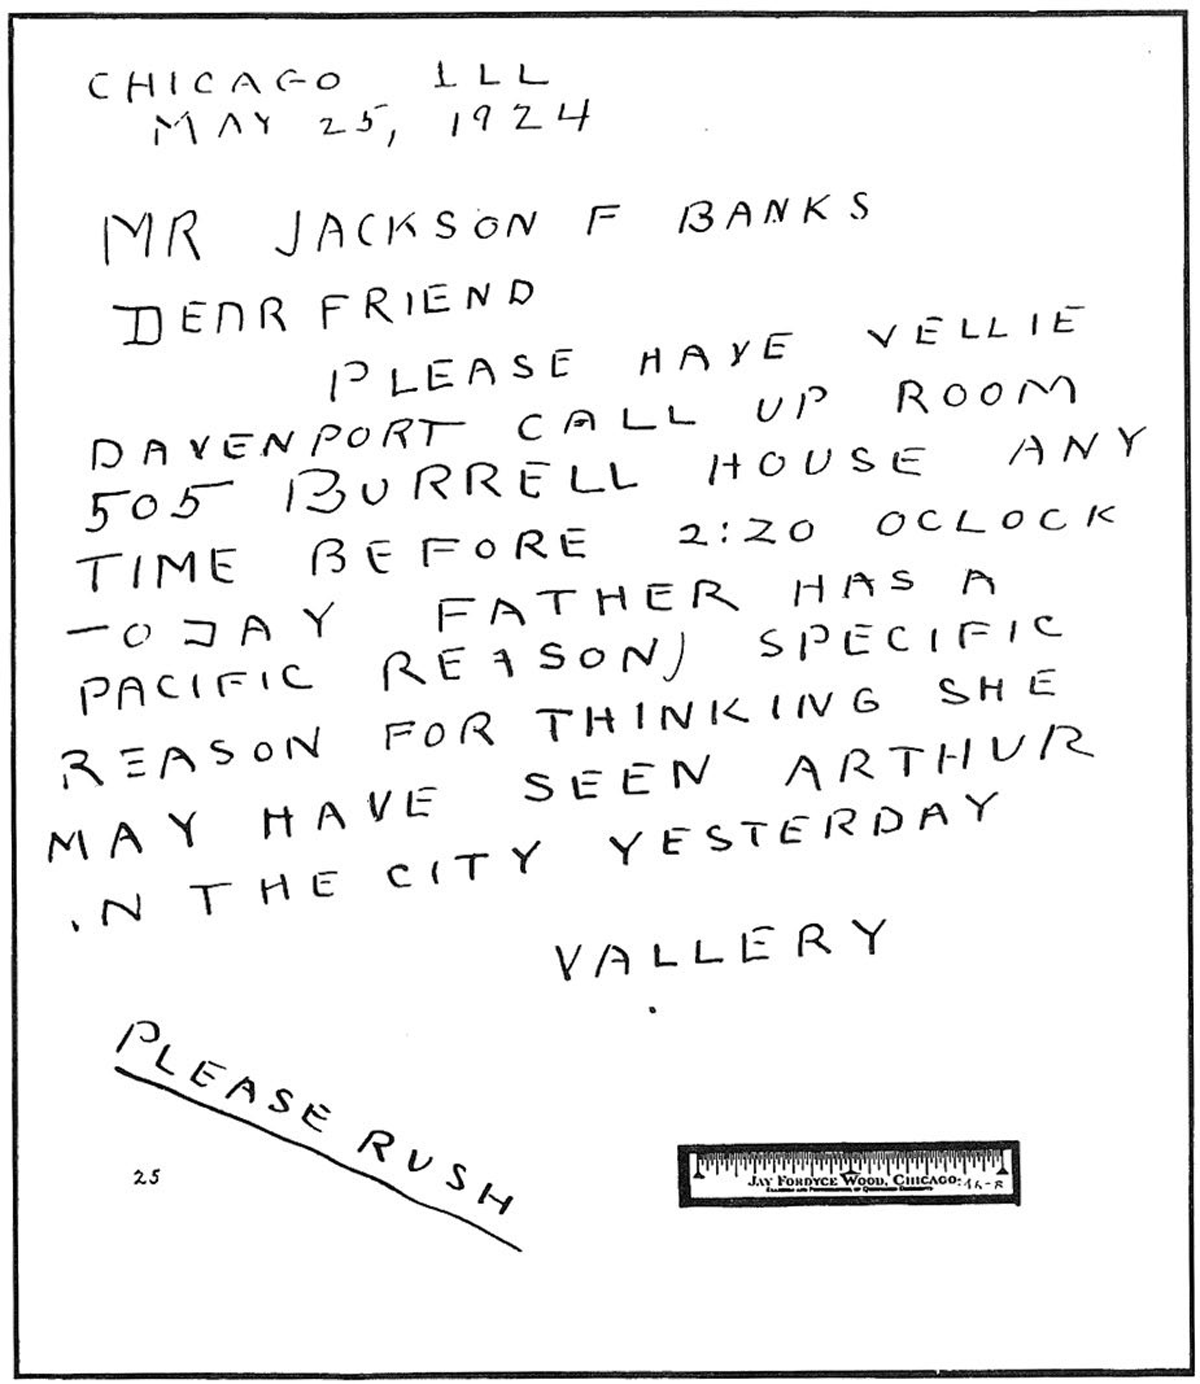 CHICAGO ILL
MAY 25, 1924
MR JACKSON F BANKS
DEAR FRIEND
PLEASE HAVE VELLIE
DAVENPORT CALL UP ROOM
505 BURRELL HOUSE ANY
TIME BEFORE 2:20 OCLOCK
TODAY FATHER HAS A
PACIFIC REASON) SPECIFIC
REASON FOR THINKING SHE
MAY HAVE SEEN ARTHUR
IN THE CITY YESTERDAY
VALLERY
PLEASE RUSH
25
JAY FORDYCE WOOD, CHICAGO.